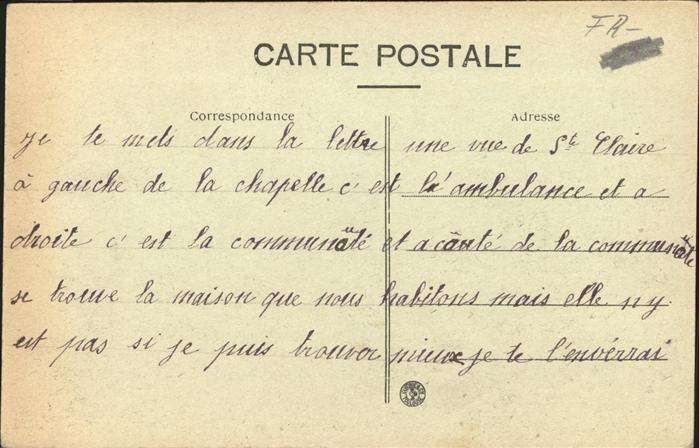 FR-
CARTE POSTALE
Correspondance
Adresse
je te mets dans la lettre une vue de Ste Claire
à gauche de la chapelle c'est l'ambulance et a
droite c'est la communauté et a côuté de la communauté
se trouve la maison que nous habitons mais elle n y
est pas si je puis trouver mieux je te l'enverrai